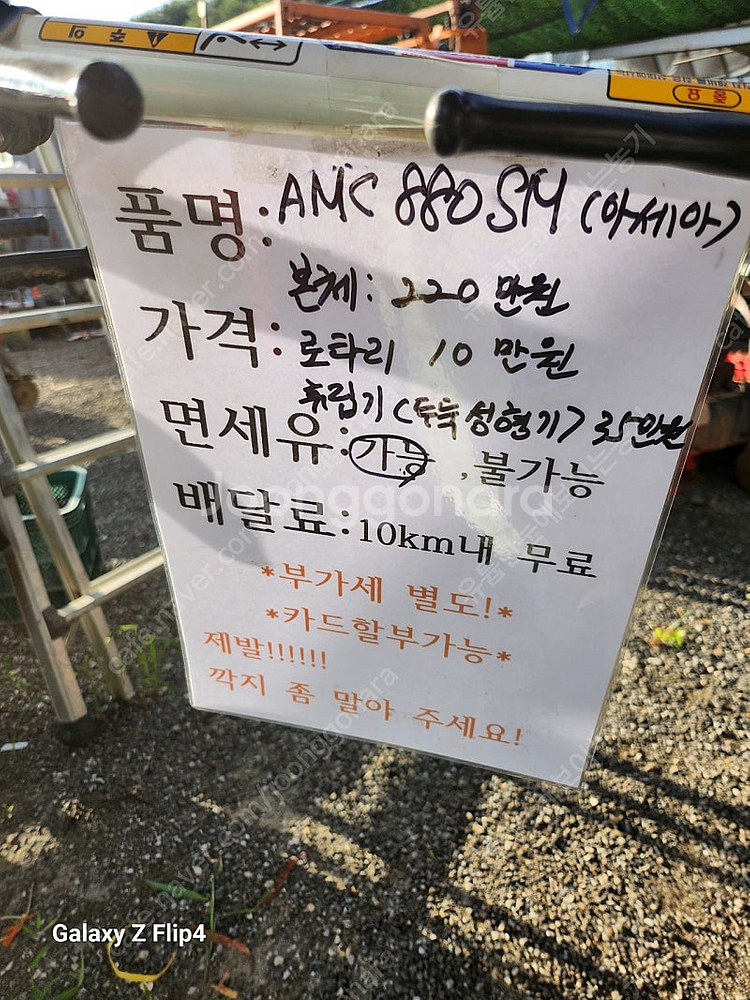 주의
품명: AMC 880SM (아세아)
본체: 220 만원
가격: 로타리 10 만원
휴립기 (두둑 성형기) 35만원
면세유: 가능 , 불가능
배달료: 10km내 무료
*부가세 별도!*
*카드할부가능*
제발!!!!!!
깍지 좀 말아 주세요!
joonggonara
Galaxy Z Flip4